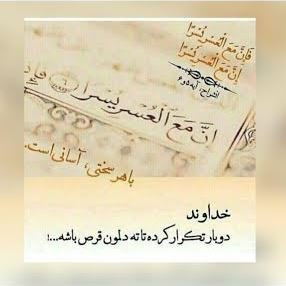 فَاِنَّ مَعَ الْعُسْرِ یُسْرًا
اِنَّ مَعَ الْعُسْرِ یُسْرًا
انشراح، آیه ۵و۶
اِنَّ مَعَ الْعُسْرِ یُسْرًا ۶ فَاِذَا
با هر سختی، آسانی است.
خداوند
دوبار تکرار کرده تا ته دلمون قرص باشه...!